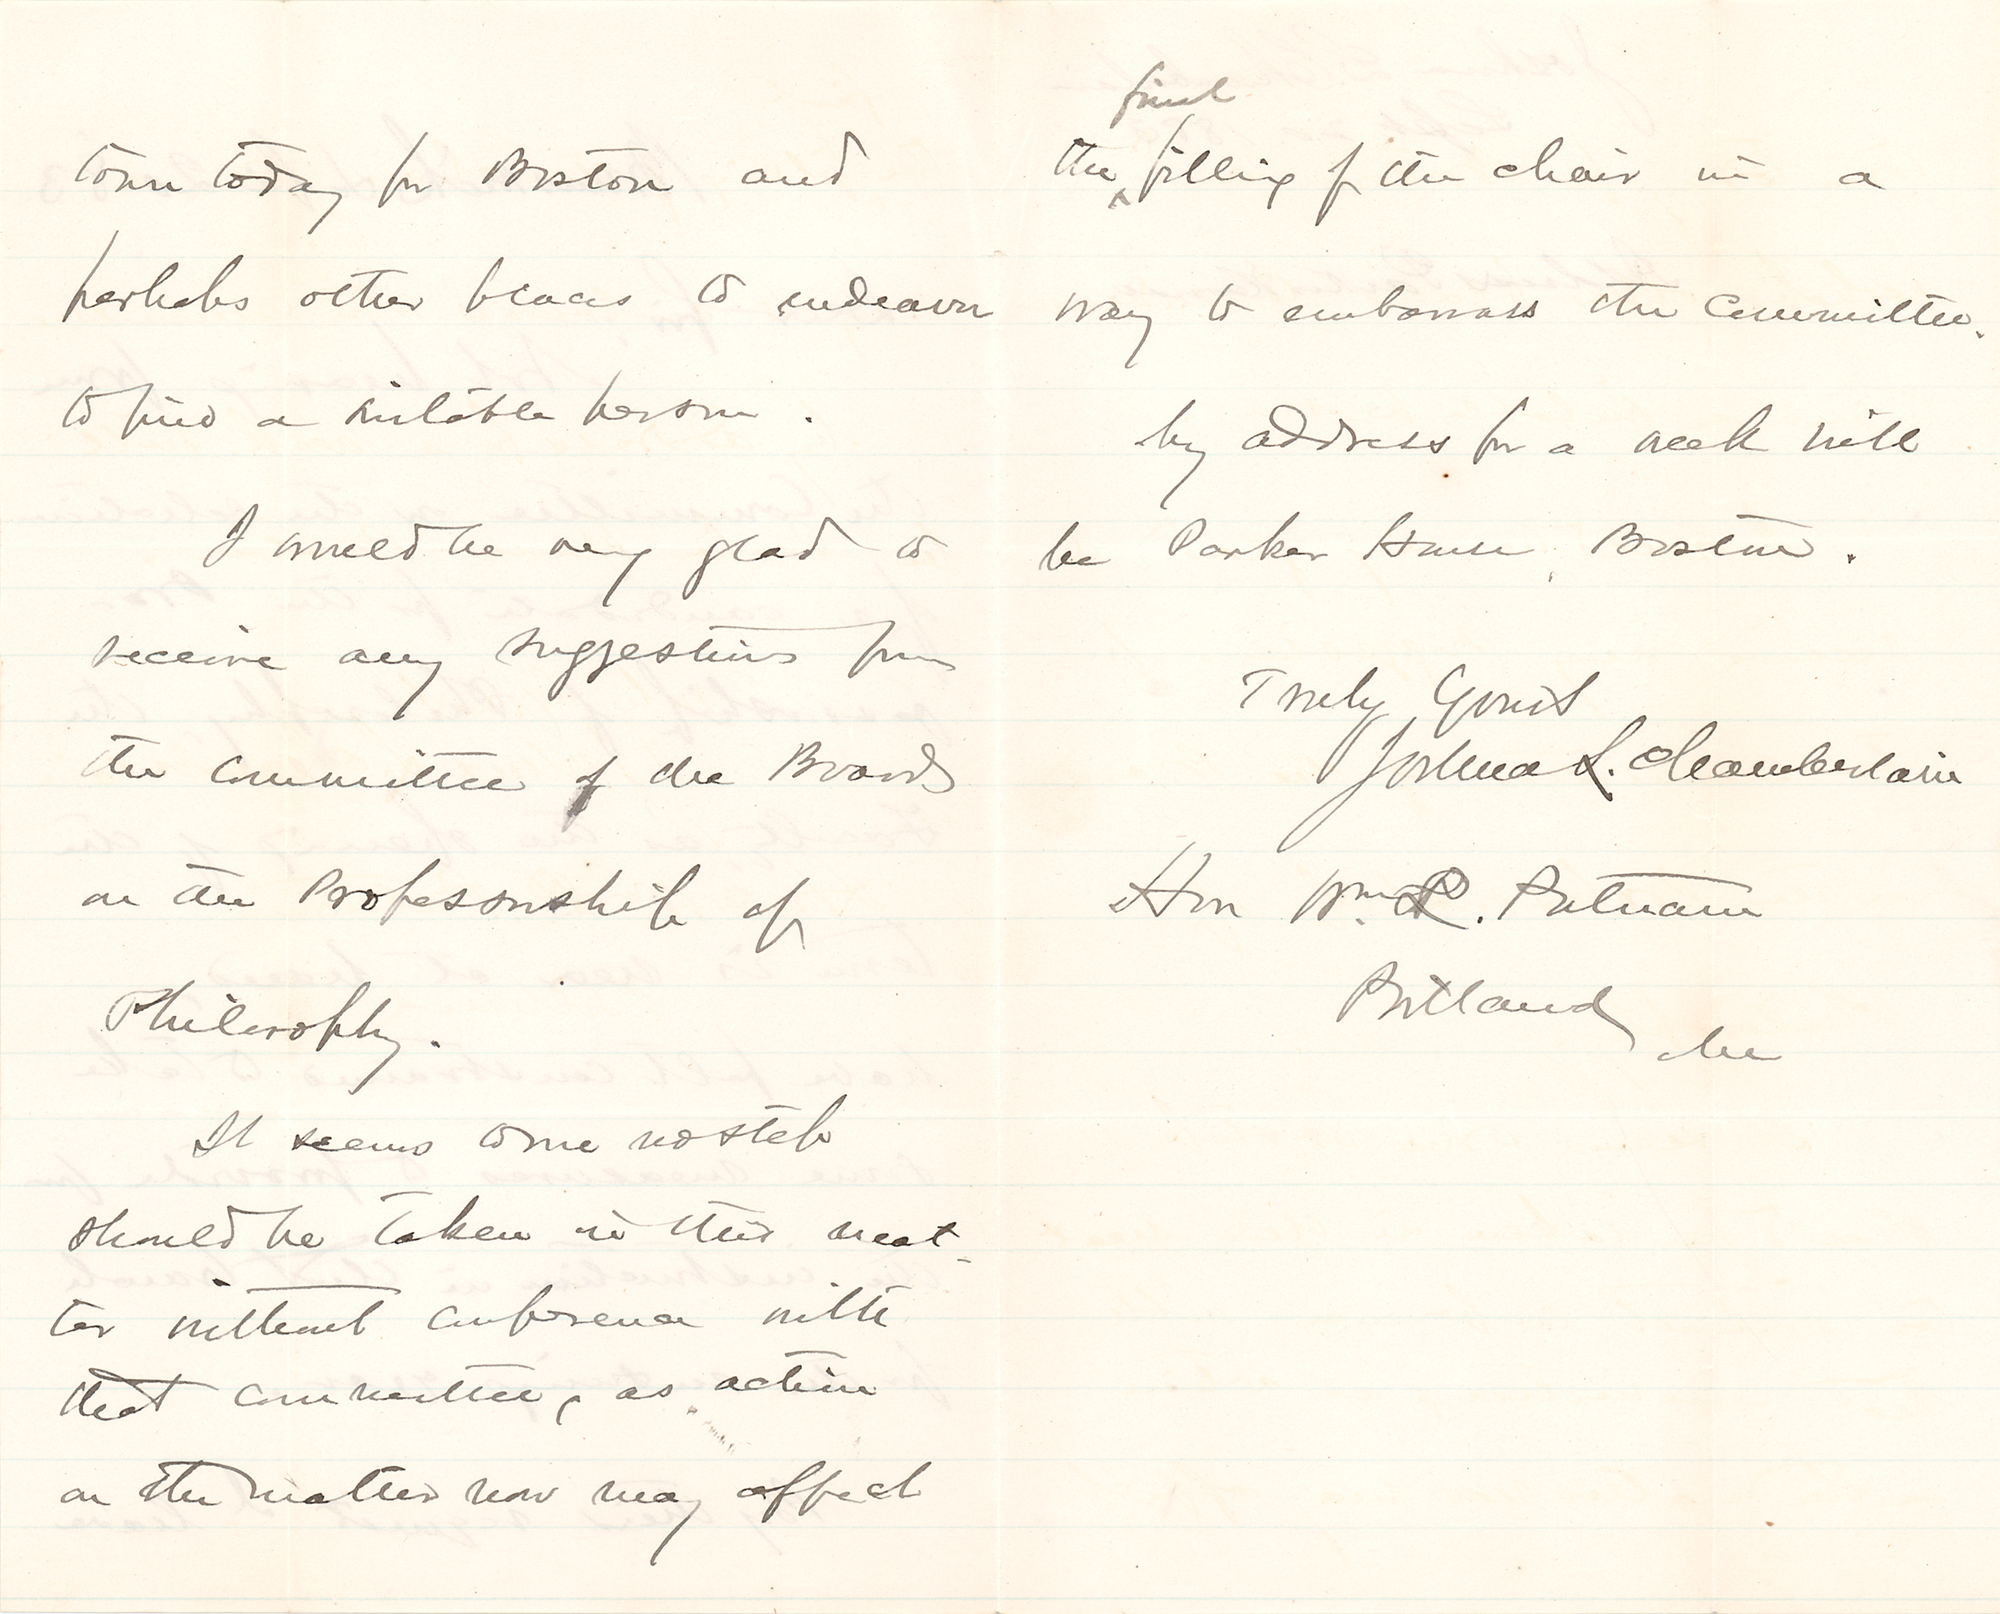 town today for Boston and
perhaps other places to endeavor
to find a suitable person.
I would be very glad to
receive any suggestions from
the committee of the Boards
on the Professorship of
Philosophy.
It seems to me no step
should be taken in this mat-
ter without conference with
that committee, as action
on the matter now may affect
final
the ^ filling of the chair in a
way to embarrass the Committee.
My address for a week will
be Parker House, Boston.
Truly Yours
Joshua L. Chamberlain
Hon Wm. L. Putnam
Portland
Me